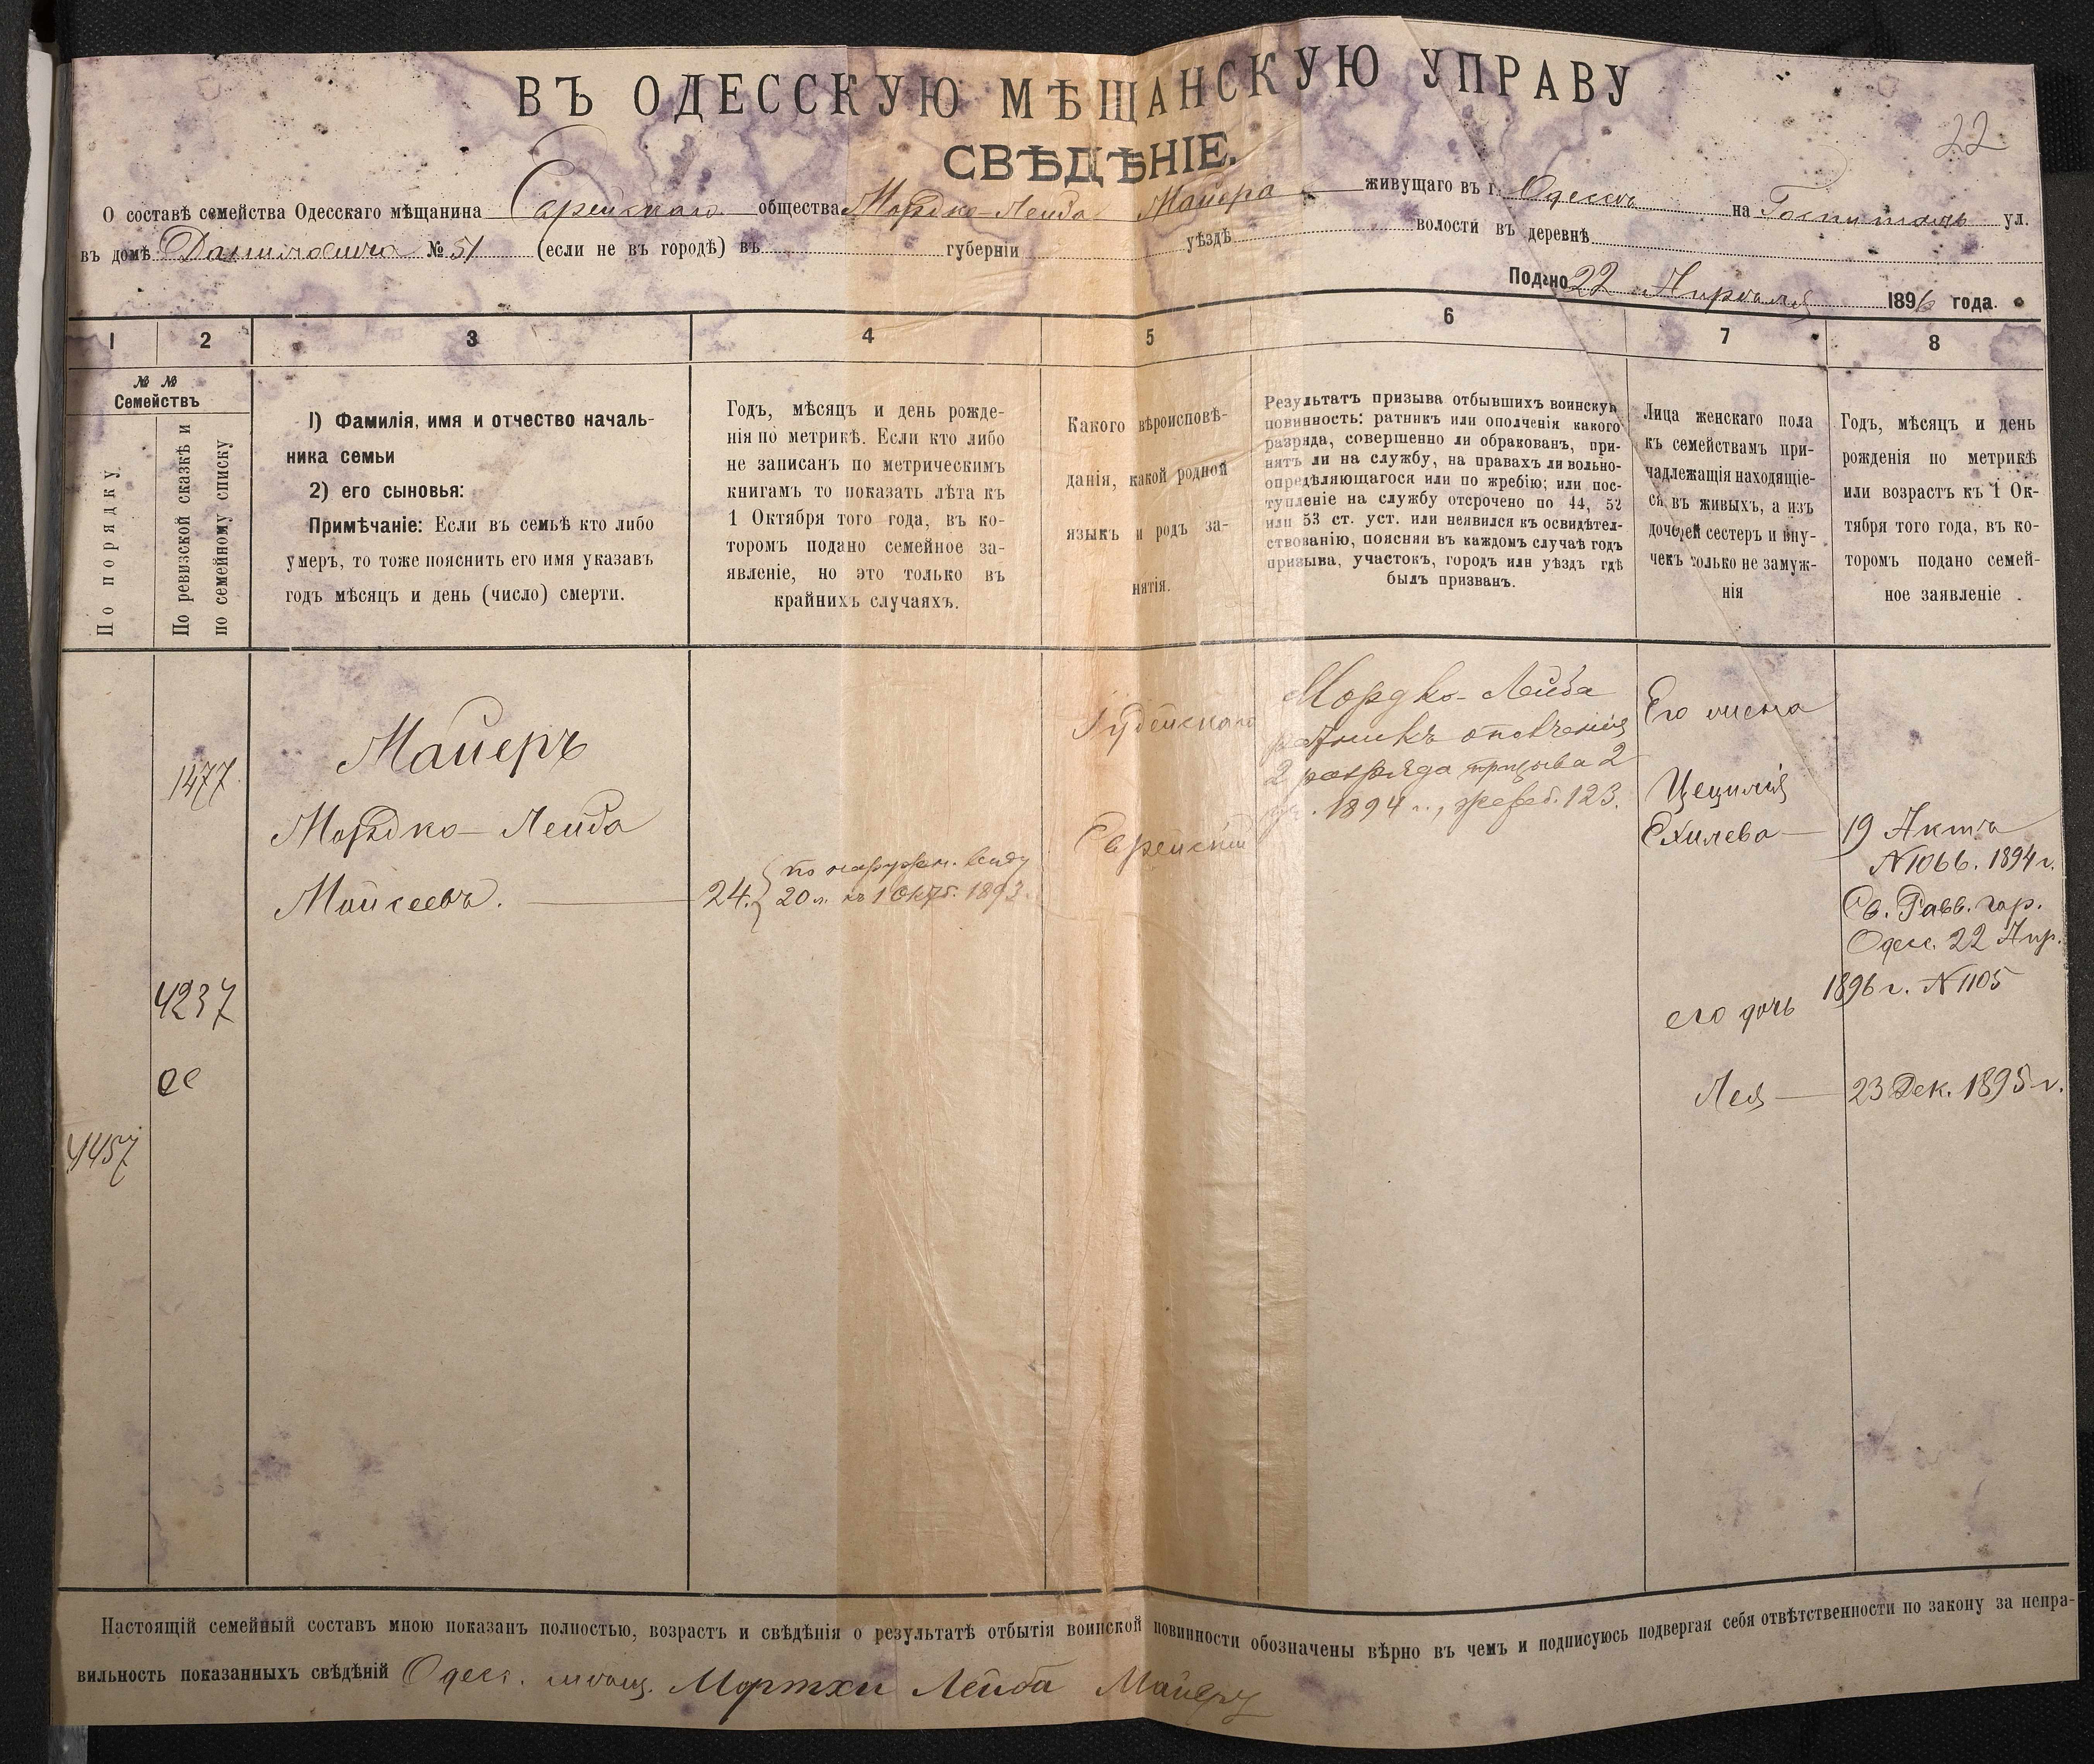 ВЪ ОДЕССКУЮ МѢЩАНСКУЮ УПРАВУ
22
СВѢДѢНІЕ.
О составѣ семейства Одесскаго мѣщанина Еврейскаго общества Мордко-Лейба Майера живущаго въ г. Одессѣ на Госпитальн ул.
въ домѣ № 51 (если не въ городѣ) въ губерніи уѣздѣ волости въ деревнѣ
Подано 22 Апрѣля 1896 года.
1 2 3 4 5 6 7 8
№ № Семействъ
По порядку
По ревизской сказкѣ и
по семейному списку
1) Фамилія, имя и отчество началь-
ника семьи
2) его сыновья:
Примѣчаніе: Если въ семьѣ кто либо
умеръ, то тоже пояснить его имя указавъ
годъ мѣсяцъ и день (число) смерти.
Годъ, мѣсяцъ и день рожде-
нія по метрикѣ. Если кто либо
не записанъ по метрическимъ
книгамъ то показать лѣта къ
1 Октября того года, въ ко-
торомъ подано семейное за-
явленіе, но это только въ
крайнихъ случаяхъ.
Какого вѣроисповѣ-
данія, какой родной
языкъ и родъ за-
нятія.
Результатъ призыва отбывшихъ воинскую
повинность: ратникъ или ополченія какого
разряда, совершенно ли обракованъ, при-
нятъ ли на службу, на правахъ ли вольно-
опредѣляющагося или по жребію; или пос-
тупленіе на службу отсрочено по 44, 52
или 53 ст. уст. или неявился къ освидѣтел-
ствованію, поясняя въ каждомъ случаѣ годъ
призыва, участокъ, городъ или уѣздъ гдѣ
былъ призванъ.
Лица женскаго пола
къ семействамъ при-
надлежащія находящіе-
ся въ живыхъ, а изъ
дочерей сестеръ и вну-
чекъ только не замуж-
нія
Годъ, мѣсяцъ и день
рожденія по метрикѣ
или возрастъ къ 1 Ок-
тября того года, въ ко-
торомъ подано семей-
ное заявленіе .
1477
4237
ее
4457
Майеръ
Мордко-Лейба
Мойсеевъ.
24. { по наружн. виду
20 л. къ 1 Октб. 1893
Іудейскаго
Еврейскій
Мордко-Лейба
ратникъ ополченія
2 разряда призыва 2
1894 г., жереб. 123.
Его жена
Цецилія
Ехилева
его дочь
Лея
19 Акта
№ 1066. 1894 г.
Св. Равв. гор.
Одес. 22 Апр.
1896 г. № 1105
23 Дек. 1895 г.
Настоящій семейный составъ мною показанъ полностью, возрастъ и свѣдѣнія о результатѣ отбытія воинской повинности обозначены вѣрно въ чемъ и подписуюсь подвергая себя отвѣтственности по закону за непра-
вильность показанныхъ свѣдѣній Одесс. мѣщ. Мортхи Лейба Майеръ